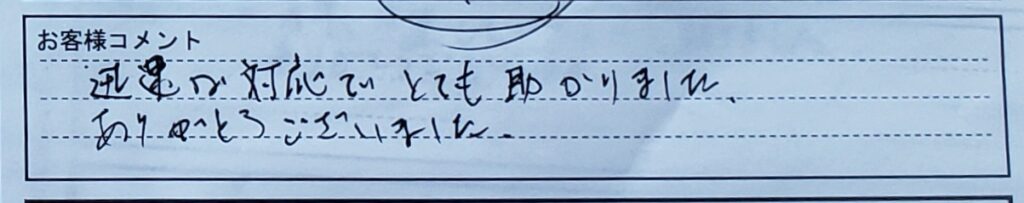 お客様コメント
迅速な対応でとても助かりました。
ありがとうございました。